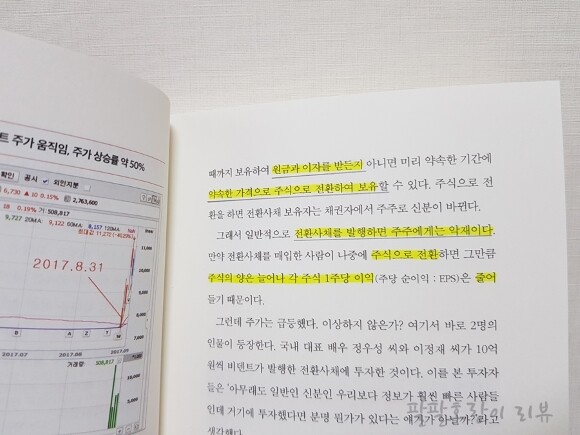 트 주가 움직임, 주가 상승률 약 50%
확인 공시 외인지분
6,730 ▲10 0.15% 2,763,600
0.19% 거: 508,817
9,727 20MA: 9,132 60MA: 8,157 120MA:
2017.8.31
11,000
2017.07 2017.08 2017.09
거래량: 508,817
때까지 보유하여 원금과 이자를 받든지 아니면 미리 약속한 기간에
약속한 가격으로 주식으로 전환하여 보유할 수 있다. 주식으로 전
환을 하면 전환사채 보유자는 채권자에서 주주로 신분이 바뀐다.
그래서 일반적으로 전환사채를 발행하면 주주에게는 악재이다.
만약 전환사채를 매입한 사람이 나중에 주식으로 전환하면 그만큼
주식의 양은 늘어나 각 주식 1주당 이익(주당 순이익 : EPS)은 줄어
들기 때문이다.
그런데 주가는 급등했다. 이상하지 않은가? 여기서 바로 2명의
인물이 등장한다. 국내 대표 배우 정우성 씨와 이정재 씨가 10억
원씩 비덴트가 발행한 전환사채에 투자한 것이다. 이를 본 투자자
들은 ‘아무래도 일반인 신분인 우리보다 정보가 훨씬 빠른 사람들
인데 거기에 투자했다면 분명 뭔가가 있다는 얘기가 아닐까?’라고
생각했다.
팔팔호랑이 리뷰